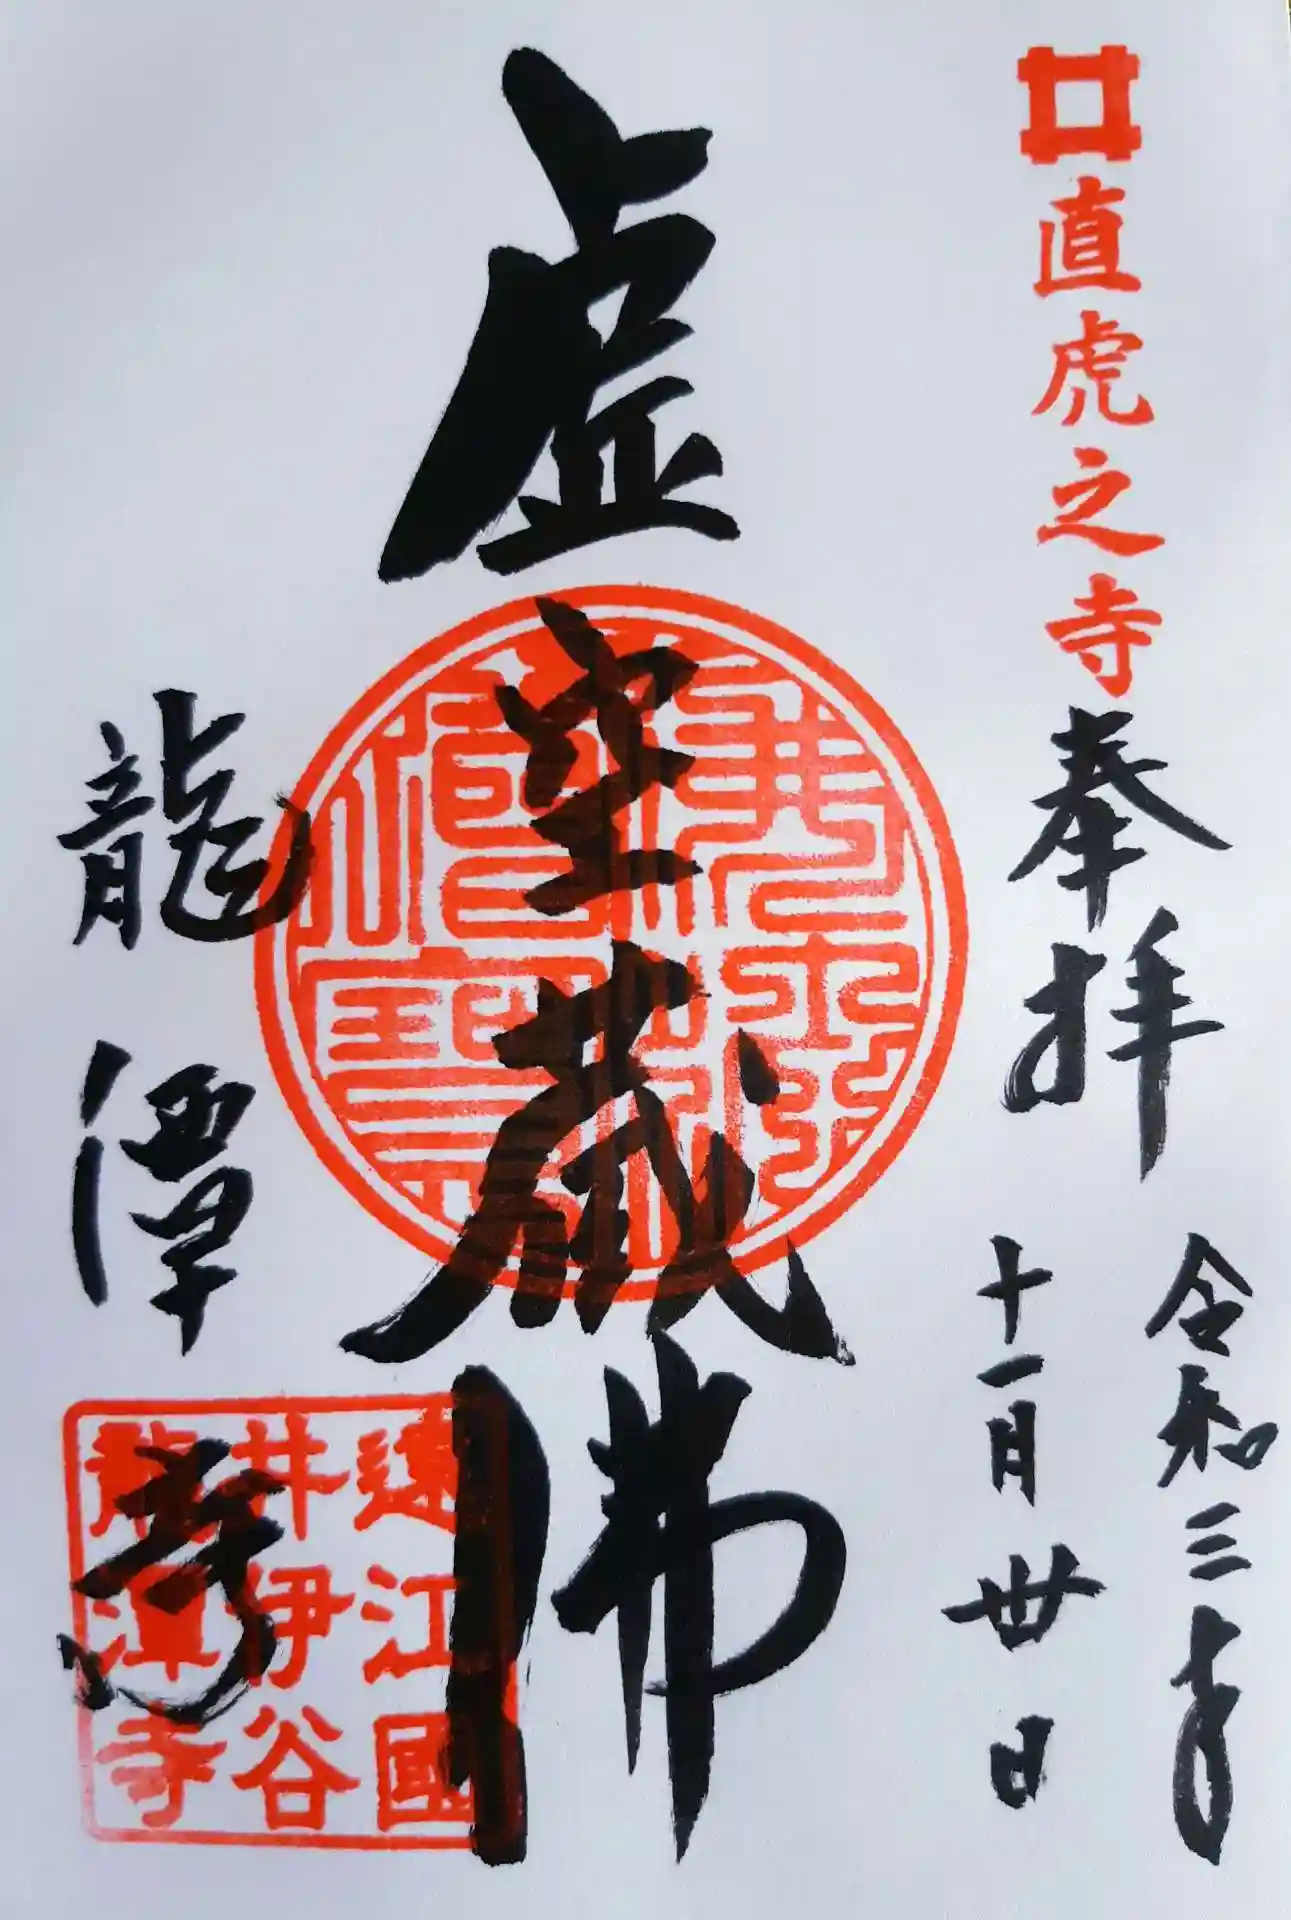 直虎之寺
奉拝
令和三年
十一月丗日
虚空蔵佛
佛法僧寶
龍潭寺
遠江國
井伊谷
龍潭寺